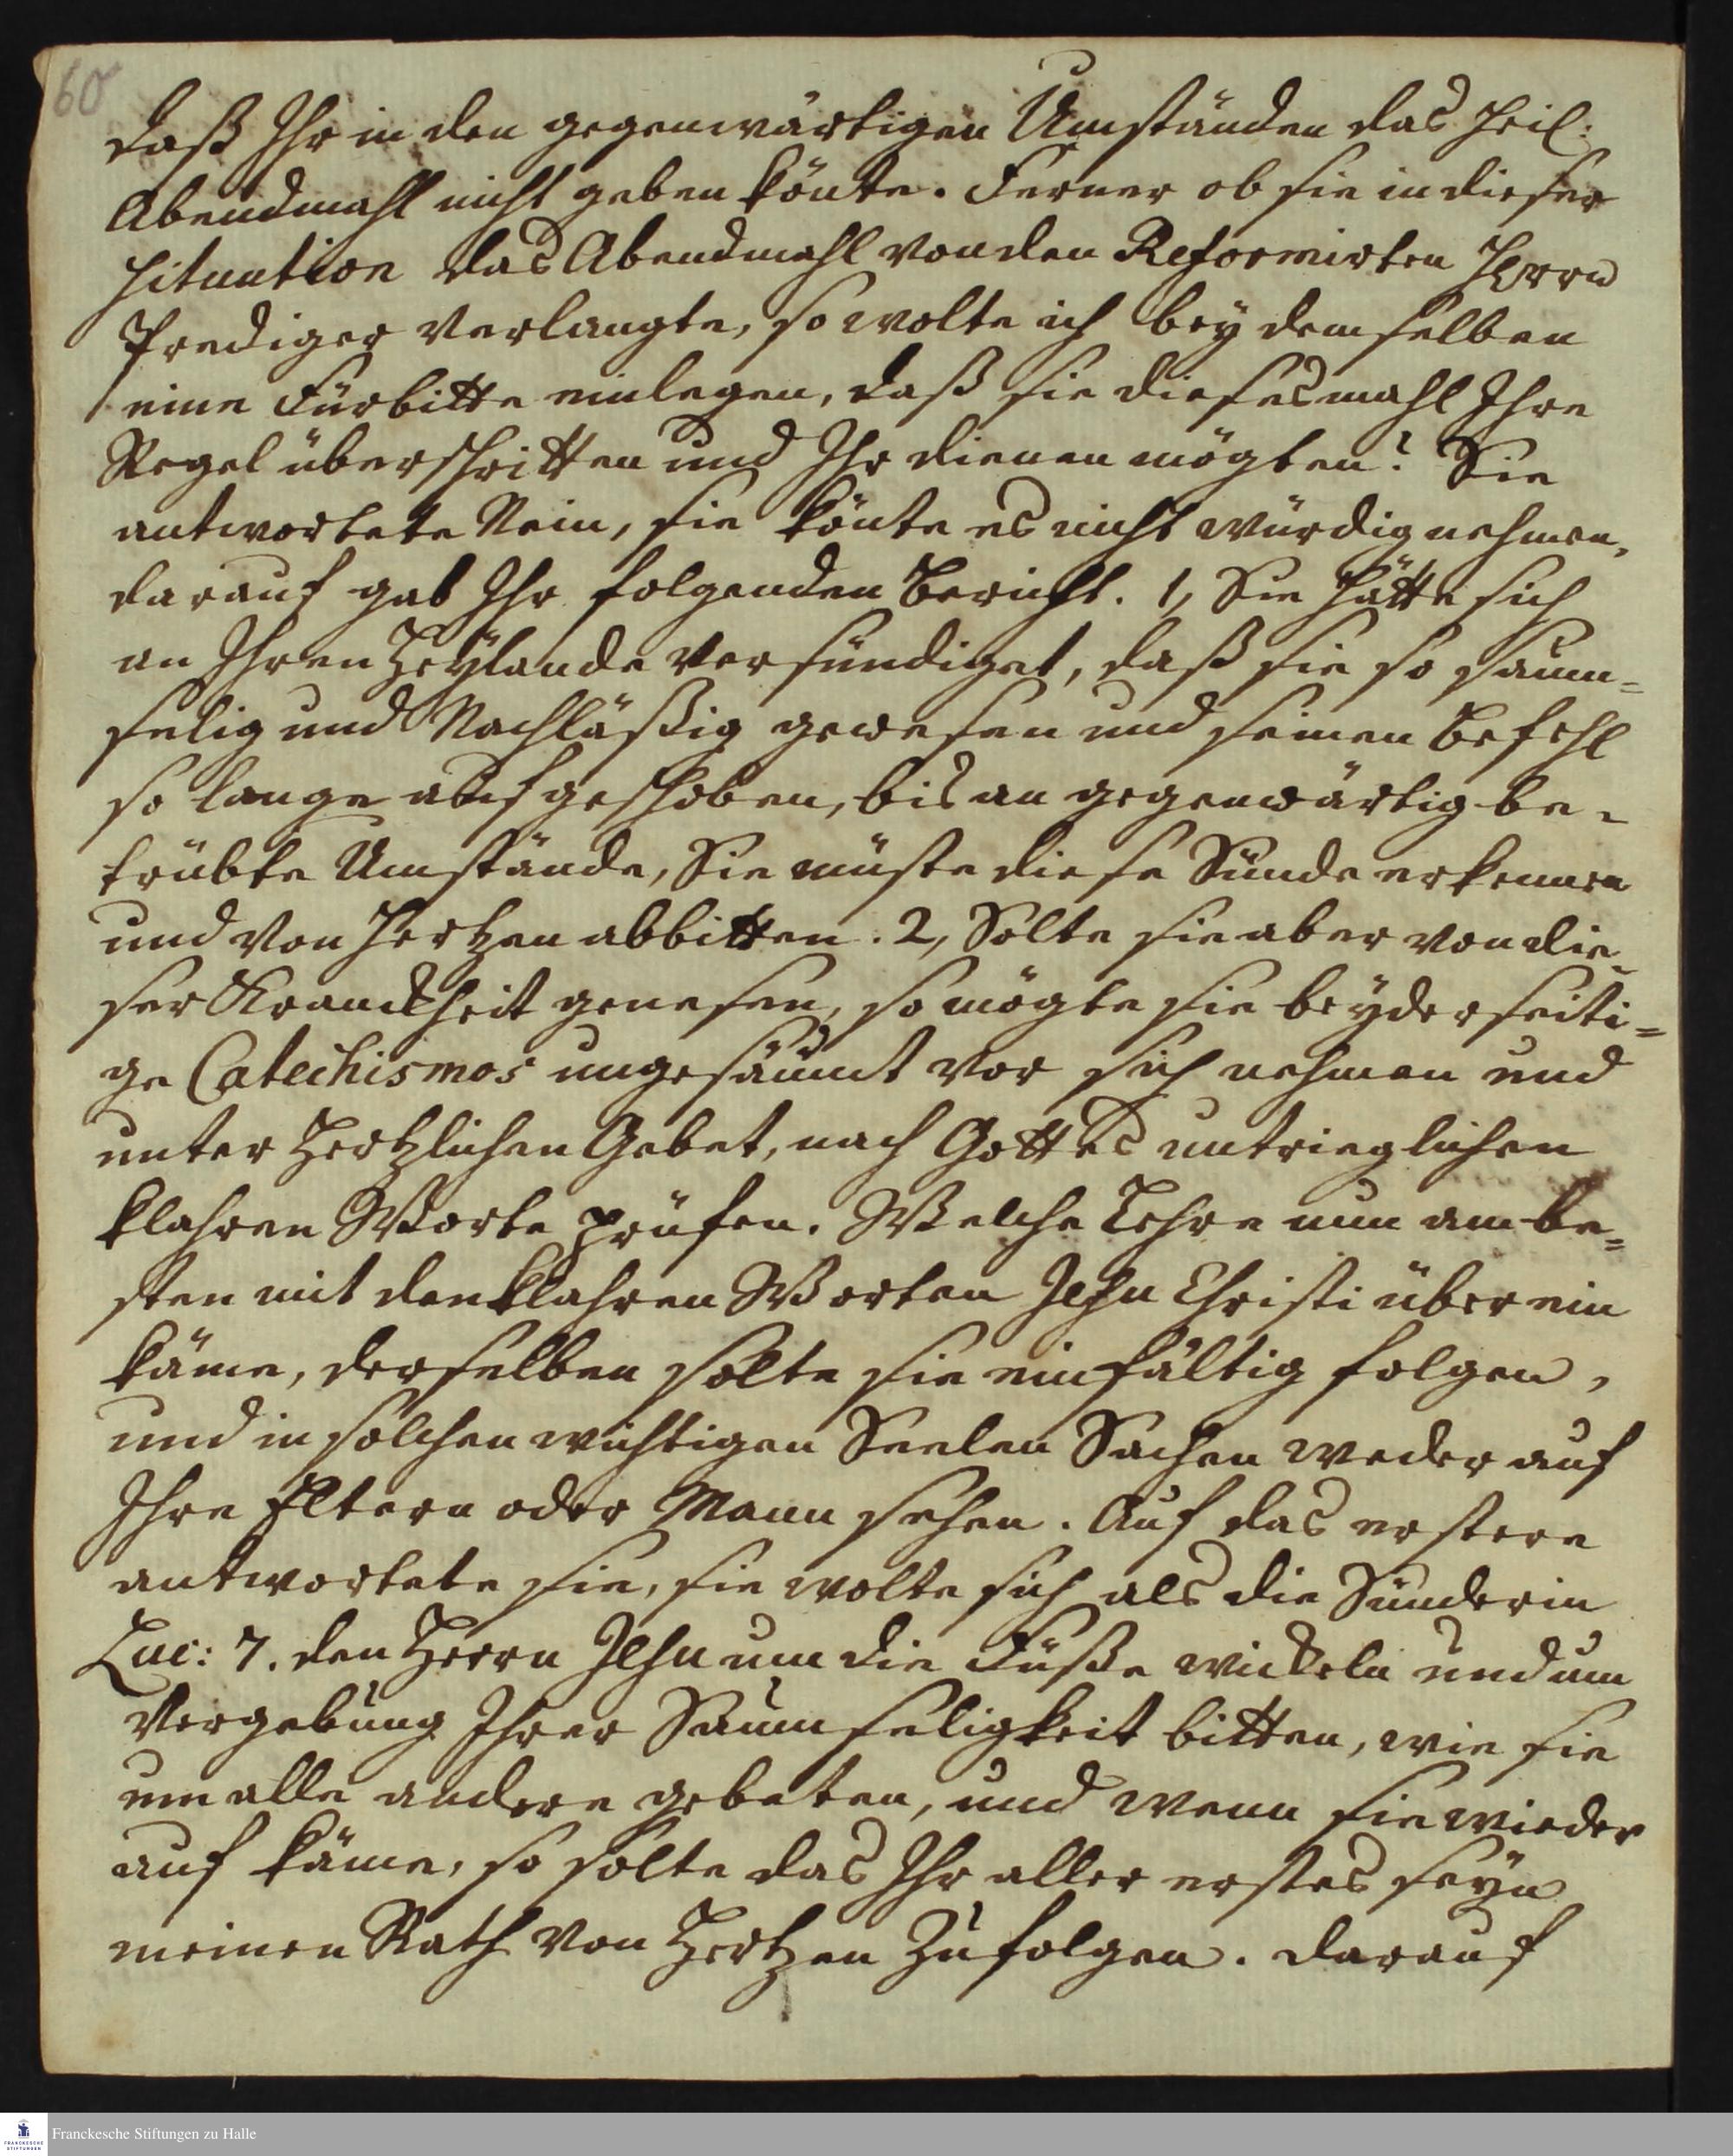 60
daß Ihr in den gegenwärtigen Umständen das Heil:
Abendmahl nicht geben könte. Ferner ob sie in dieser
Situation das Abendmahl von den Reformirten Herrn
Prediger verlangte, so wolte ich bey demselben
eine Fürbitte einlegen, daß sie diesesmahl Ihre
Regel überschritten und Ihr dienen mögten? Sie
antwortete Nein, sie könte es nicht würdig nehmen,
darauf gab Ihr folgenden Bericht. 1, Sie hätte sich
an Ihren Heylande versündiget, daß sie so saum=
selig und Nachläßig gewesen und seinen Befehl
so lange aufgeschoben, bis an gegenwärtig be-
trübte Umstände, Sie müste diese Sünde erkennen
und von Hertzen abbitten. 2, Solte sie aber von die-
ser Kranckheit genesen, so mögte sie beyderseiti=
ge Catechismos ungesäumt vor sich nehmen und
unter Hertzlichen Gebet, nach Gottes untrieglichen
klahren Worte prüfen. Welche Lehre nun am be=
sten mit den klahren Worten Jesu Christi über ein
käme, derselben solte sie einfältig folgen,
und in solchen wichtigen Seelen Sachen weder auf
Ihre Eltern oder Mann sehen. Auf das erstere
antwortete sie, sie wolte sich als die Sünderin
Luc: 7. den Herrn Jesu um die Füße wickeln und um
Vergebung Ihrer Saumseligkeit bitten, wie sie
um alle andere gebeten, und wenn sie wieder
auf käme, so solte das Ihr aller erstes seyn
meinen Rath von Hertzen zu folgen. Darauf
FRANCKESCHE STIFTUNGEN
Franckesche Stiftungen zu Halle